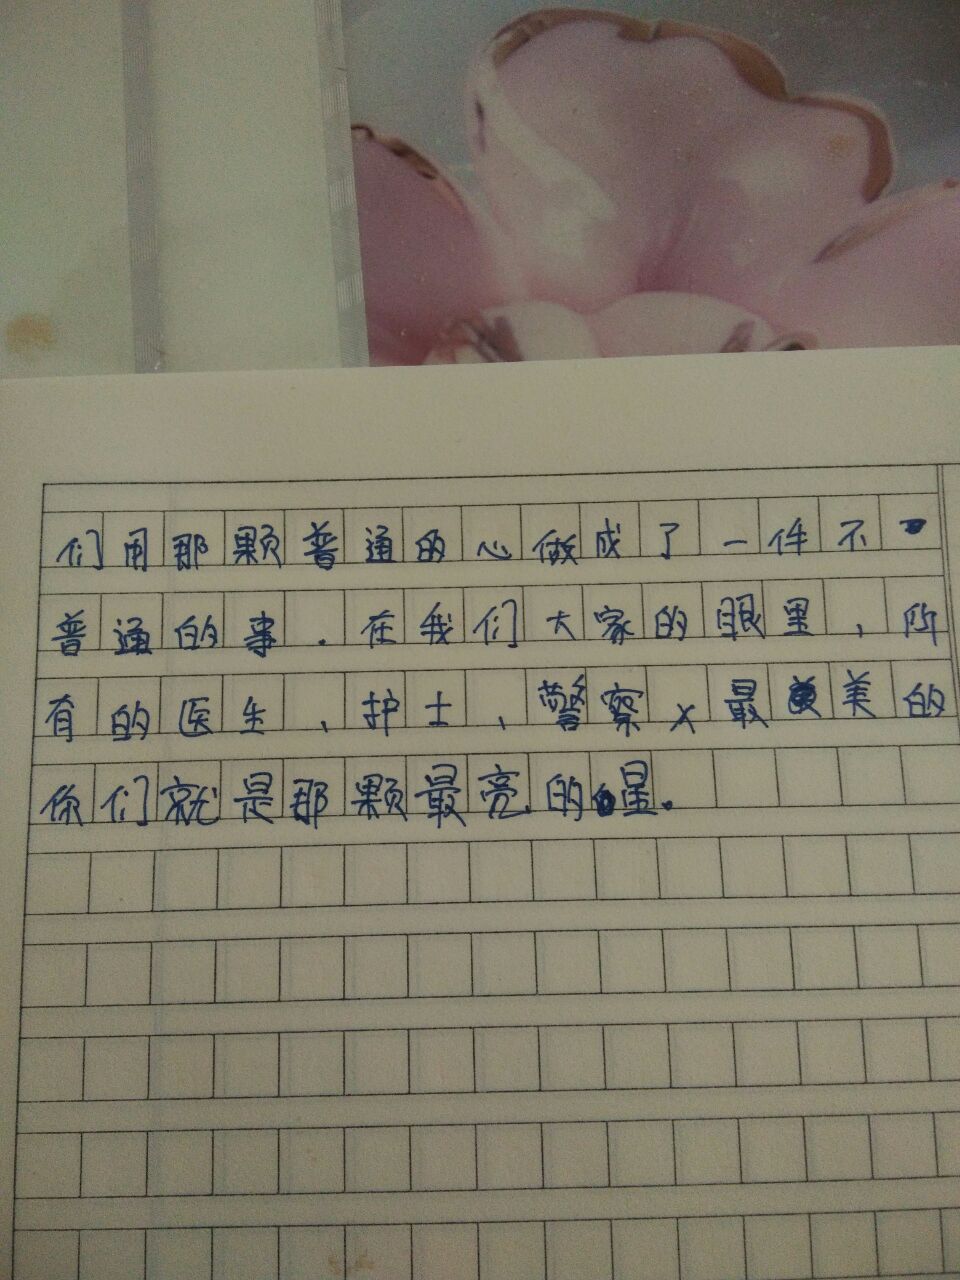 们用那颗普通的心做成了一件不
普通的事.在我们大家的眼里,所
有的医生、护士、警察x最美的
你们就是那颗最亮的星.